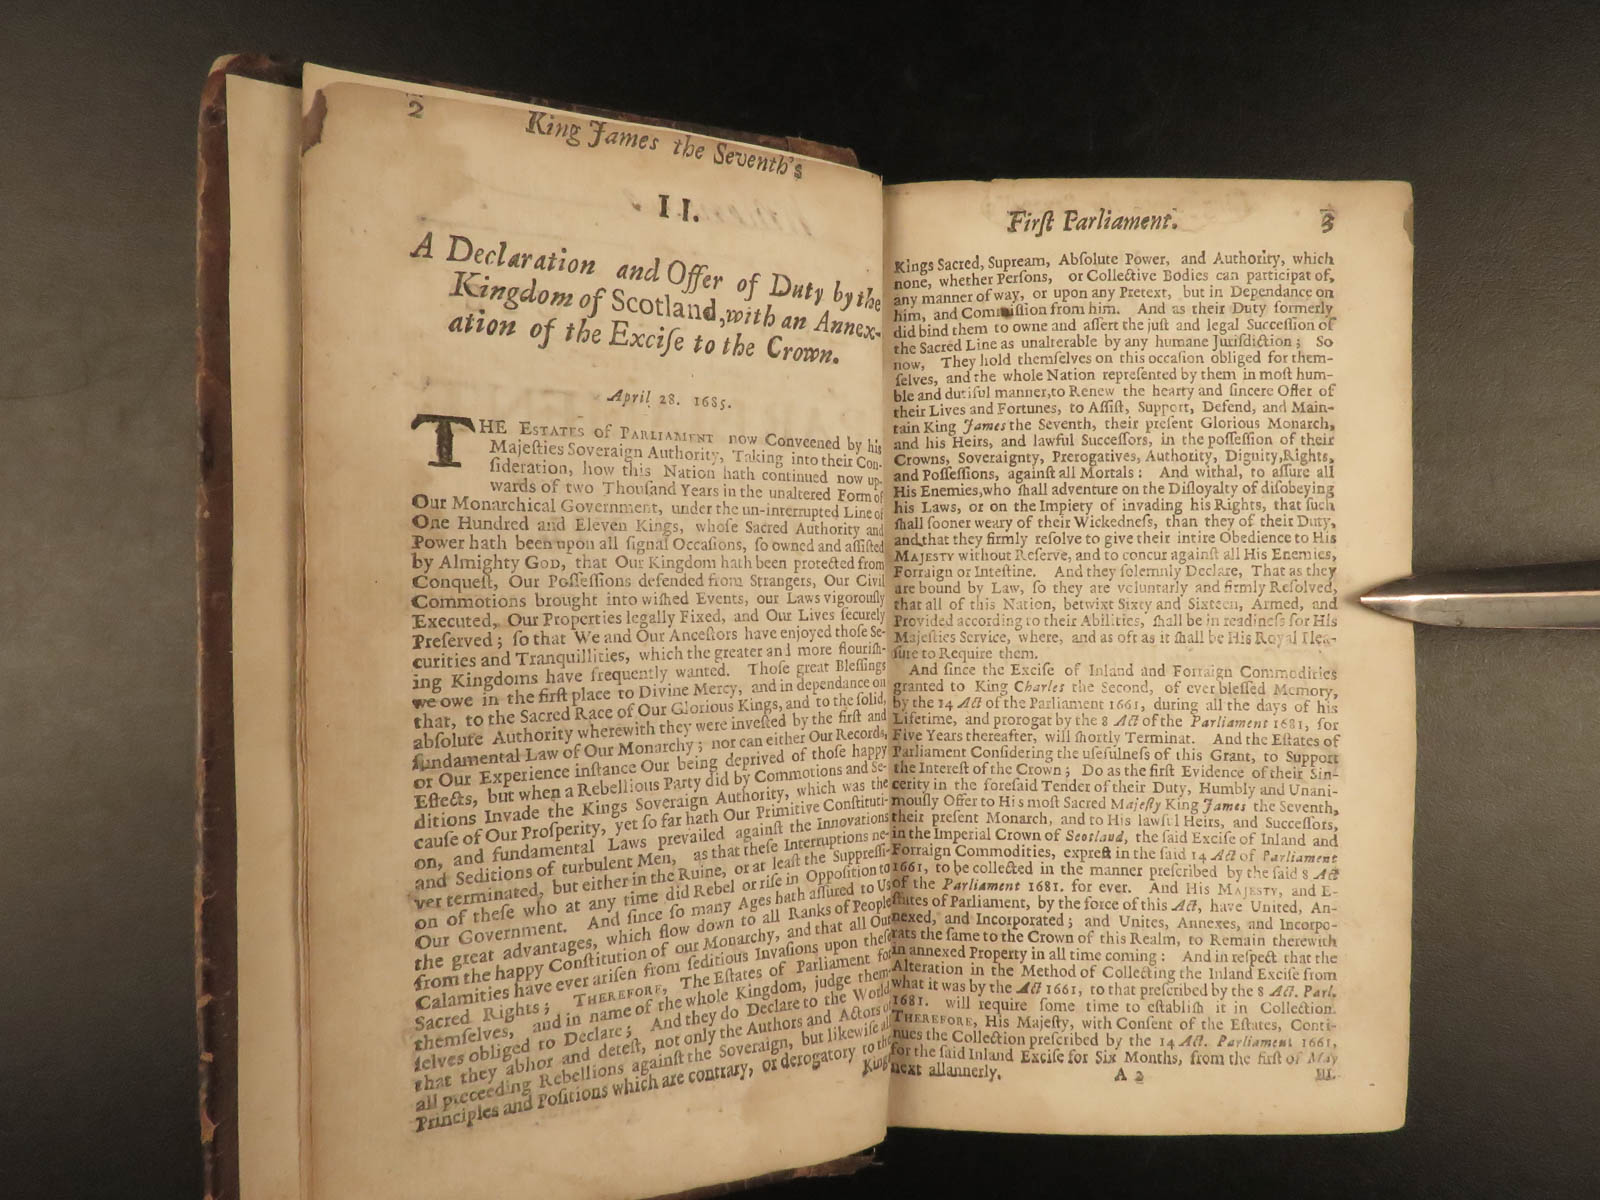 2
King James the Seventh's
II.
A Declaration and Offer of Duty by the
Kingdom of Scotland, with an Annex-
ation of the Exciſe to the Crown.
April 28. 1685.
THE ESTATES of PARLIAMENT now Conveened by his
Majeſties Soveraign Authority, Taking into their Con-
ſideration, how this Nation hath continued now up-
wards of two Thouſand Years in the unaltered Form of
Our Monarchical Government, under the un-interrupted Line of
One Hundred and Eleven Kings, whoſe Sacred Authority and
Power hath been upon all ſignal Occaſions, ſo owned and aſſiſted
by Almighty GOD, that Our Kingdom hath been protected from
Conqueſt, Our Poſſeſſions defended from Strangers, Our Civil
Commotions brought into wiſhed Events, our Laws vigorouſly
Executed, Our Properties legally Fixed, and Our Lives ſecurely
Preſerved; ſo that We and Our Anceſtors have enjoyed thoſe Se-
curities and Tranquillities, which the greater and more flouriſh-
ing Kingdoms have frequently wanted. Thoſe great Bleſſings
we owe in the firſt place to Divine Mercy, and in dependance on
that, to the Sacred Race of Our Glorious Kings, and to the ſolid,
abſolute Authority wherewith they were inveſted by the firſt and
fundamental Law of Our Monarchy; nor can either Our Records,
or Our Experience inſtance Our being deprived of thoſe happy
Effects, but when a Rebellious Party did by Commotions and Se-
ditions Invade the Kings Soveraign Authority, which was the
cauſe of Our Proſperity, yet ſo far hath Our Primitive Conſtituti-
on, and fundamental Laws prevailed againſt the Innovations
and Seditions of turbulent Men, as that theſe Interruptions ne-
ver terminated, but either in the Ruine, or at leaſt the Suppreſſi-
on of theſe who at any time did Rebel or riſe in Oppoſition to
Our Government. And ſince ſo many Ages hath aſſured to Us
the great advantages, which flow down to all Ranks of People
from the happy Conſtitution of our Monarchy, and that all Our
Calamities have ever ariſen from ſeditious Invaſions upon theſe
Sacred Rights; THEREFORE, The Eſtates of Parliament for
themſelves, and in name of the whole Kingdom, judge them-
ſelves obliged to Declare; And they do Declare to the World
that they abhor and deteſt, not only the Authors and Actors of
all preceeding Rebellions againſt the Soveraign, but likewiſe all
Principles and Poſitions which are contrary, or derogatory to the
Kings
Firſt Parliament.
3
Kings Sacred, Supream, Abſolute Power, and Authority, which
none, whether Perſons, or Collective Bodies can participat of,
any manner of way, or upon any Pretext, but in Dependance on
him, and Commiſſion from him. And as their Duty formerly
did bind them to owne and aſſert the juſt and legal Succeſſion of
the Sacred Line as unalterable by any humane Juriſdiction; So
now, They hold themſelves on this occaſion obliged for them-
ſelves, and the whole Nation repreſented by them in moſt hum-
ble and dutiful manner, to Renew the hearty and ſincere Offer of
their Lives and Fortunes, to Aſſiſt, Support, Defend, and Main-
tain King James the Seventh, their preſent Glorious Monarch,
and his Heirs, and lawful Succeſſors, in the poſſeſſion of their
Crowns, Soveraignty, Prerogatives, Authority, Dignity, Rights,
and Poſſeſſions, againſt all Mortals: And withal, to aſſure all
His Enemies, who ſhall adventure on the Diſloyalty of diſobeying
his Laws, or on the Impiety of invading his Rights, that ſuch
ſhall ſooner weary of their Wickedneſs, than they of their Duty,
and that they firmly reſolve to give their intire Obedience to His
MAJESTY without Reſerve, and to concur againſt all His Enemies,
Forraign or Inteſtine. And they ſolemnly Declare, That as they
are bound by Law, ſo they are voluntarly and firmly Reſolved,
that all of this Nation, betwixt Sixty and Sixteen, Armed, and
Provided according to their Abilities, ſhall be in readineſs for His
Majeſties Service, where, and as oft as it ſhall be His Royal Plea-
ſure to Require them.
And ſince the Exciſe of Inland and Forraign Commodities
granted to King Charles the Second, of ever bleſſed Memory,
by the 14 Act of the Parliament 1661, during all the days of his
Lifetime, and prorogat by the 8 Act of the Parliament 1681, for
Five Years thereafter, will ſhortly Terminat. And the Eſtates of
Parliament Conſidering the uſefulneſs of this Grant, to Support
the Intereſt of the Crown; Do as the firſt Evidence of their Sin-
cerity in the foreſaid Tender of their Duty, Humbly and Unani-
mouſly Offer to His moſt Sacred Majeſty King James the Seventh,
their preſent Monarch, and to His lawful Heirs, and Succeſſors,
in the Imperial Crown of Scotland, the ſaid Exciſe of Inland and
Forraign Commodities, expreſt in the ſaid 14 Act of Parliament
1661, to be collected in the manner preſcribed by the ſaid 8 Act
of the Parliament 1681. for ever. And His MAJESTY, and E-
ſtates of Parliament, by the force of this Act, have United, An-
nexed, and Incorporated; and Unites, Annexes, and Incorpo-
rats the ſame to the Crown of this Realm, to Remain therewith
in annexed Property in all time coming: And in reſpect that the
Alteration in the Method of Collecting the Inland Exciſe from
what it was by the Act 1661, to that preſcribed by the 8 Act. Parl.
1681. will require ſome time to eſtabliſh it in Collection.
THEREFORE, His Majeſty, with Conſent of the Eſtates, Conti-
nues the Collection preſcribed by the 14 Act. Parliament 1661,
for the ſaid Inland Exciſe for Six Months, from the firſt of May
next allannerly.
A 2
III.